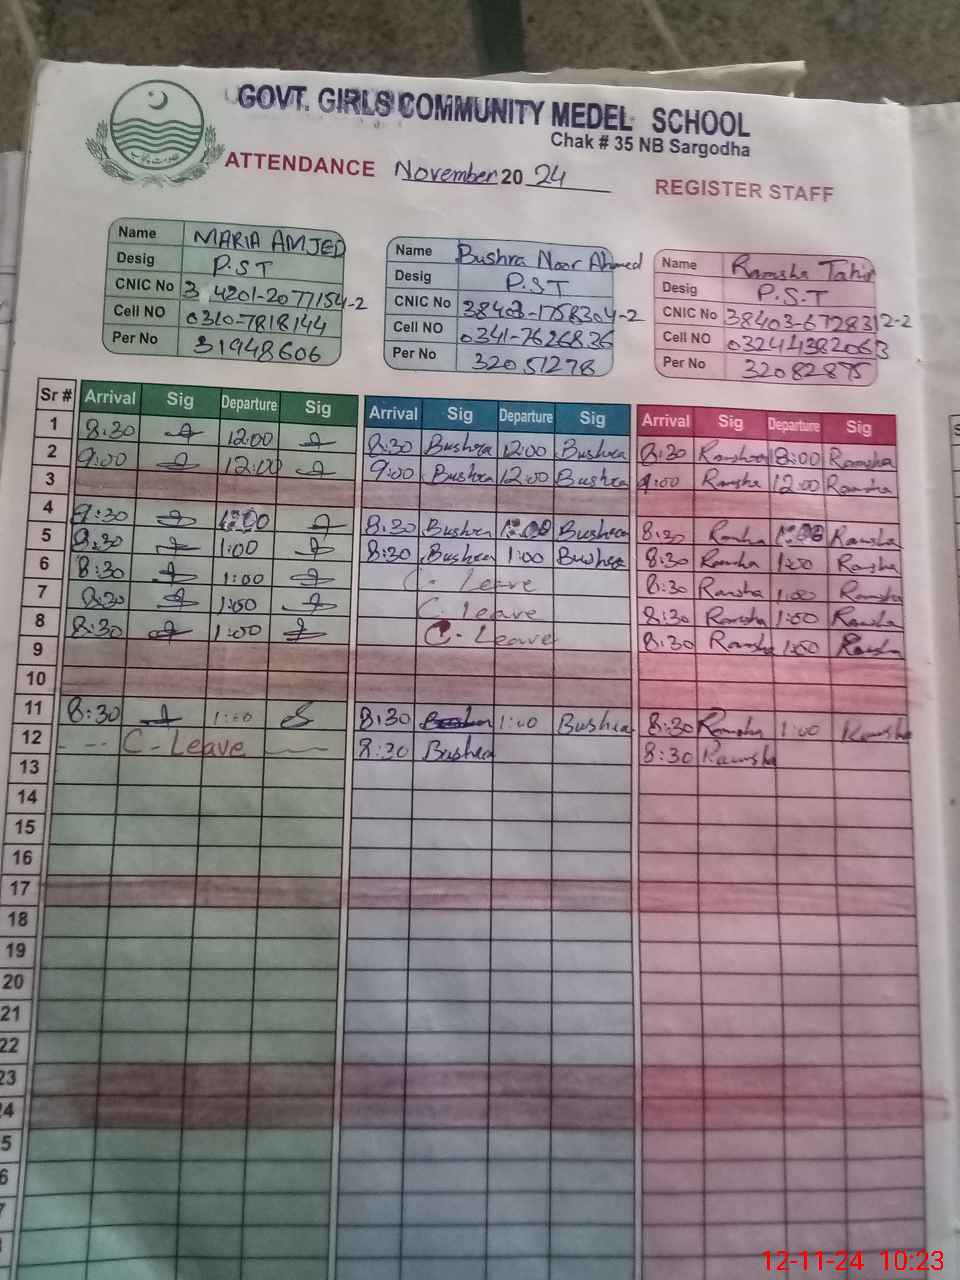 GOVT. GIRLS COMMUNITY MEDEL SCHOOL
Chak # 35 NB Sargodha
ATTENDANCE November 2024 REGISTER STAFF
Name MARIA AMJED
Desig P.S.T
CNIC No 3 4201-2077154-2
Cell NO 0310-7818144
Per No 31948606
Name Bushra Noor Ahmed
Desig P.S.T
CNIC No 38403-1758304-2
Cell NO 0341-7626836
Per No 32051278
Name Ramsha Tahir
Desig P.S.T
CNIC No 38403-6728312-2
Cell NO 03244382063
Per No 32082875
Sr # Arrival Sig Departure Sig Arrival Sig Departure Sig Arrival Sig Departure Sig
1 8:30 12:00 8:30 Bushra 12:00 Bushra 8:30 Ramsha Ramsha
2 9:00 12:00 9:00 Bushra 12:00 Bushra 9:00 Ramsha 12:00 Ramsha
3
4 8:30 Bushra Bushra 8:30 Ramsha Ramsha
5 8:30 1:00 8:30 Bushra 1:00 Bushra 8:30 Ramsha 1:00 Ramsha
6 8:30 1:00 C- Leave 8:30 Ramsha 1:00 Ramsha
7 8:30 1:00 C. leave 8:30 Ramsha 1:00 Ramsha
8 8:30 1:00 C- Leave 8:30 Ramsha 1:00 Ramsha
9
10
11 8:30 1:00 8:30 1:00 Bushra 8:30 Ramsha 1:00 Ramsha
12 C-Leave 8:30 Bushra 8:30 Ramsha
13
14
15
16
17
18
19
20
21
22
23
4
5
6
7
12-11-24 10:23